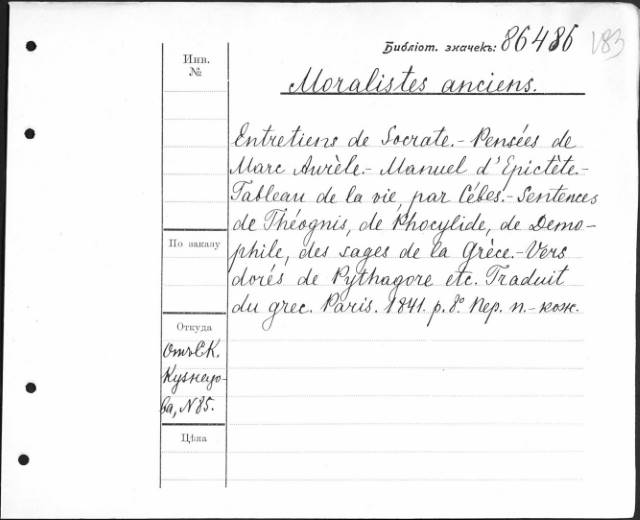 Библіот. значекъ: 86486 183
Инв.
№
Moralistes anciens.
Entretiens de Socrate.- Pensées de
Marc Aurèle.- Manuel d'Epictète.-
Tableau de la vie, par Cébes.- Sentences
de Théognis, de Phocylide, de Demo-
phile, des sages de la Grèce.- Vers
dorés de Pythagore etc. Traduit
du grec. Paris. 1841. p. 8°. Пер. п.- кож.
По заказу
Откуда
Отъ С.К.
Кузнецо-
ва, N 85.
Цѣна